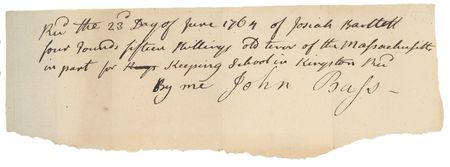 Recd the 23d Day of June 1764 of Josiah Bartlett
four Pounds fifteen Shillings old tenor of the Massachusetts
in part for Keeping School in Kingston Recd
By me John Bass